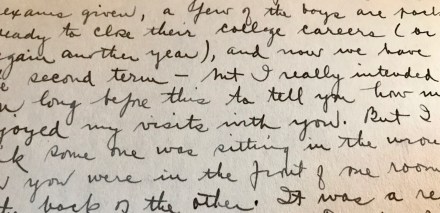 exams given, a few of the boys are
ready to close their college careers (or
again another year), and now we have
second term — but I really intended
long before this to tell you how
my visits with you. But I
some one was sitting in the
you were in the front of one room
back of the other. It was a